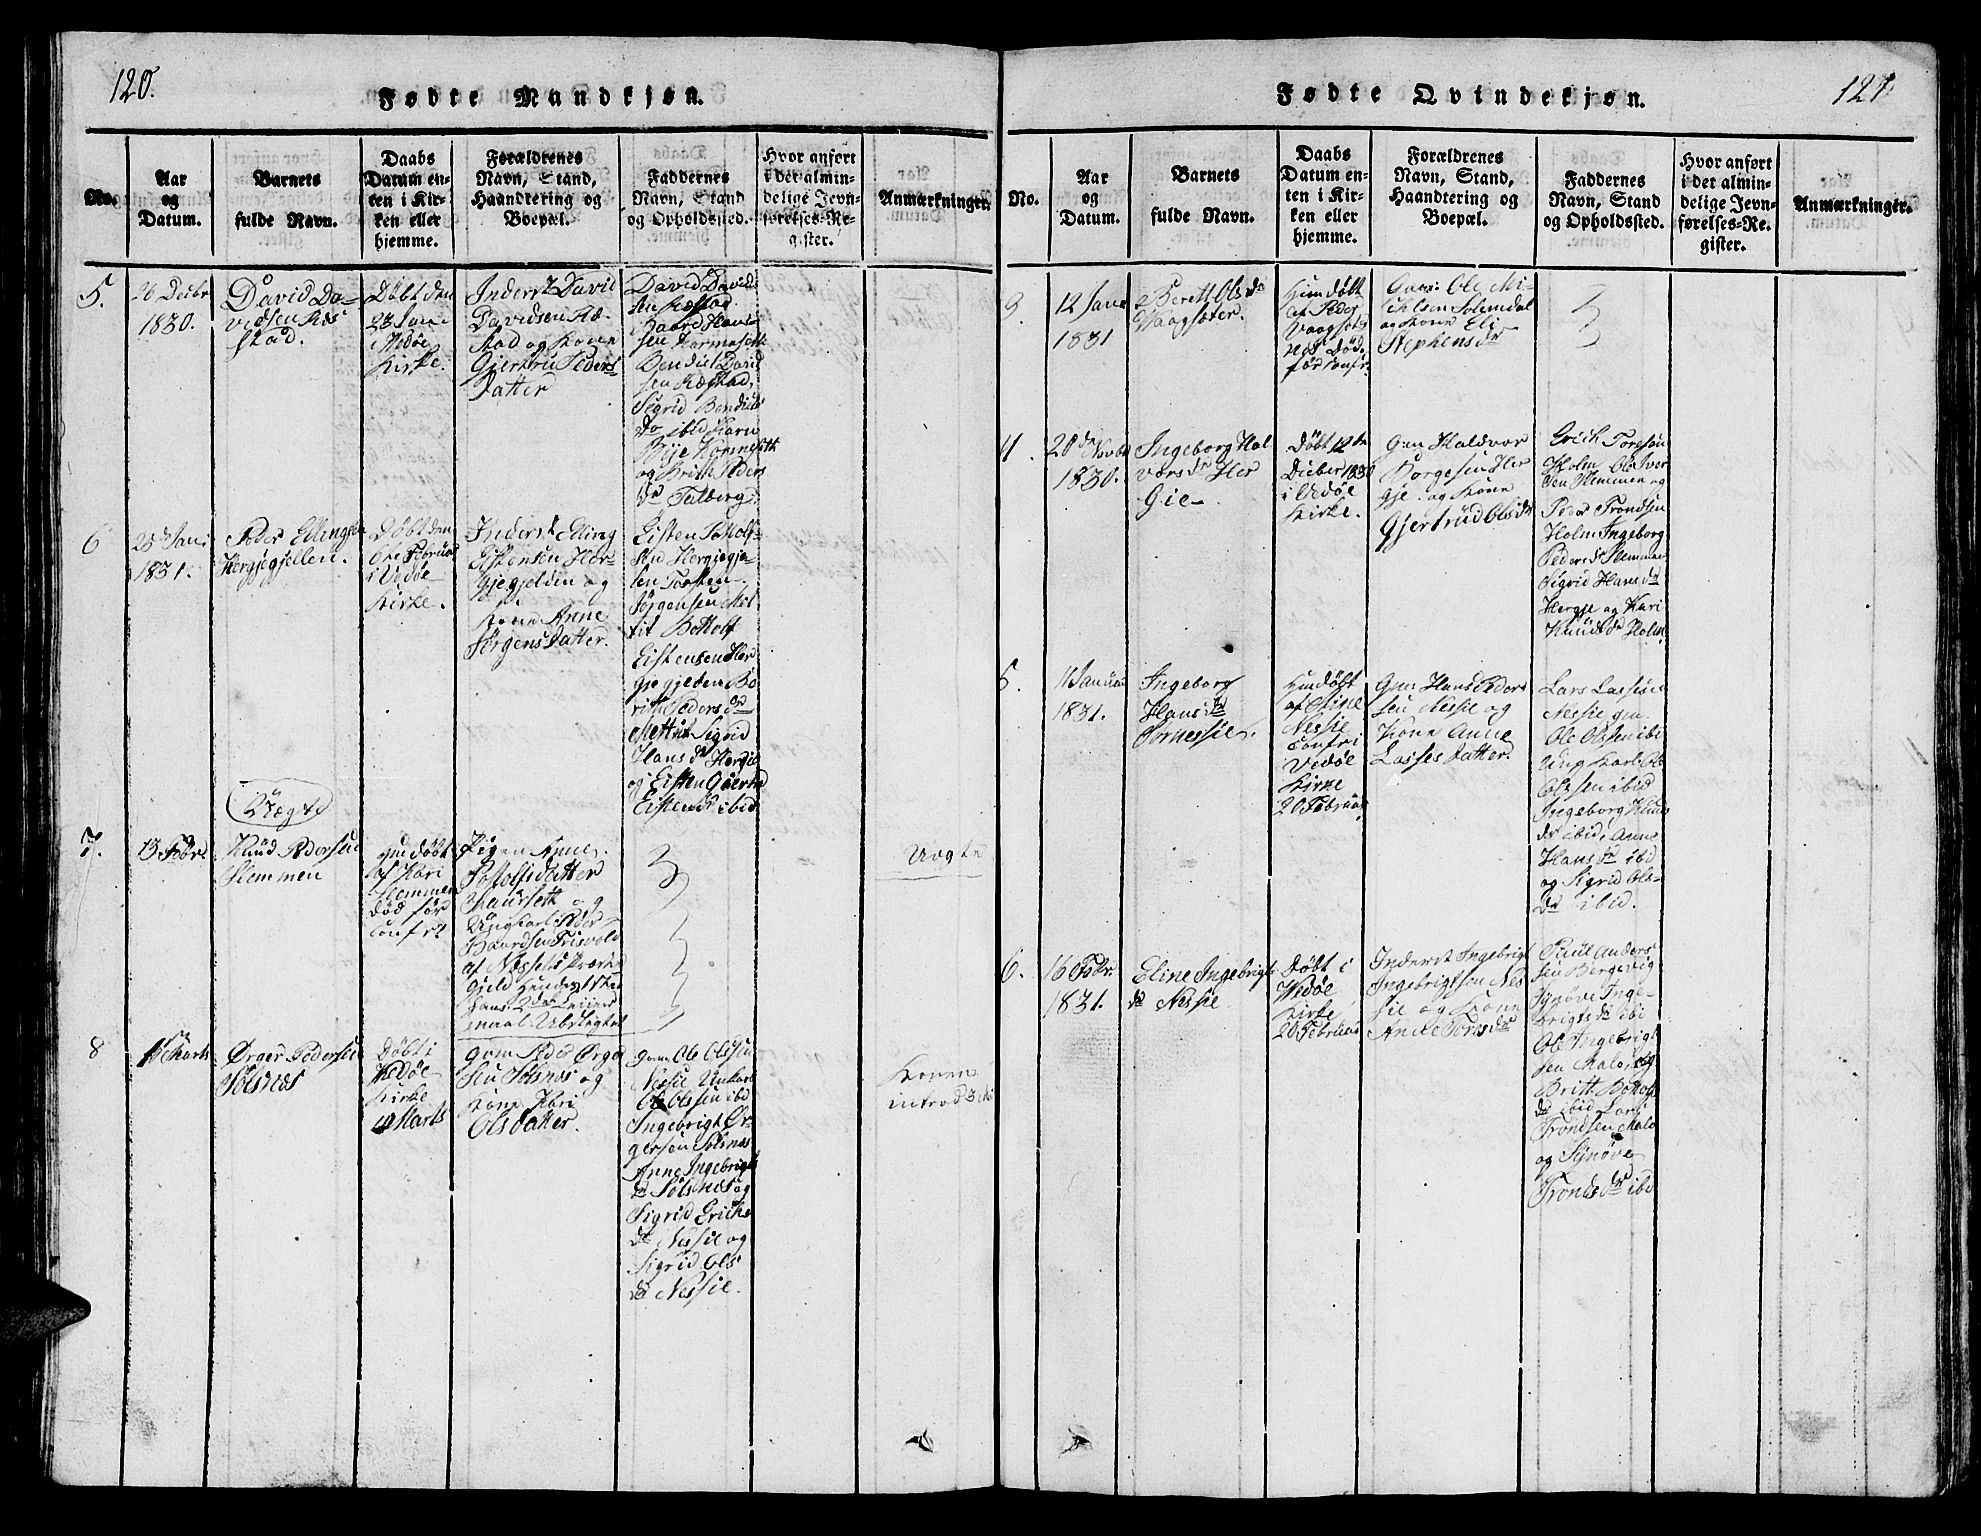 120.
Fødte Mandkjøn.
No.
Aar
og
Datum.
Barnets
fulde Navn.
Daabs
Datum en-
ten i Kir-
ken eller
hjemme.
Forældrenes
Navn, Stand,
Haandtering og
Boepæl.
Faddernes
Navn, Stand
og Opholdssted.
Hvor anført
i der almin-
delige Jevn-
førelses-Re-
gister.
Anmærkninger.
5.
26 Decbr
1830.
David Da-
vidsen Ræs
stad.
Døbt den
23 Jan:
i Vedøe
Kirke.
Inderst David
Davidsen Ræ-
stad og Kone
Gjertru Peders
Datter
David Davids
sen Ræstad
Baard Hans-
sen
Bendict David
sen Ræstad,
Sigrid Bendicts
Dr ibid Karn
og Brith Peders
Dr Talberg.
6
25 Jan:
1831.
Peder Ellingsen
Hergjegjellen.
Døbt den
i Vedøe
Kirke.
Inderst Elling
Eistensen Her-
gjegjelden og
Kone Anne
Jørgens Datter.
Eisten Botholf-
sen Hergjegje-
len Torsten
Jørgensen Met-
tit Botholf
Eistensen Her
gjegjelden Be-
rith Peders Dr
Mettit Sigrid
Hans Dr Hergie
og Eisten
Eistens Dr ibid
Uægte
7.
13 Febr
Knud Pedersen
Hemmen
Hiemdøbt
af Kari
Hemmen
død før
Confr.
Pigen Anne
Botolfsdatter
og
Ungkarl Peder
Baardsen Trisvold
af Nesset Præste
Gjeld Hendes 1ste
Hans 2den Leiger-
maal. Ubeligtet
Uægte
8
15 Marts
Ørger Pedersen
Solsnæs
Døbt i
Vedøe
Kirke
Marts
Gam. Peder Ørger
sen Solsnæs og
Kone Kari
Olsdatter.
Gaar. Ole Olssen
Nessie Unkarl
Ole Olssen ibid
Ingebrigt Ør-
gersen Solsnæs
Anne Ingebrigts
Dr Solsnæs og
Sigrid Erichs
Dr Nessie og
Sigrid Ols
Dr Nessie.
Konen
introd
121
Fødte Qvindekjøn.
No.
Aar
og
Datum.
Barnets
fulde Navn.
Daabs
Datum en-
ten i Kir-
ken eller
hjemme.
Forældrenes
Navn, Stand,
Haandtering og
Boepæl.
Faddernes
Navn, Stand
og Opholdssted.
Hvor anført
i der almin-
delige Jevn-
førelses-Re-
gister.
Anmærkninger.
3.
12 Janr
1831
Berett Olsdr
Vaagsæter.
Hiemdøbt
af Peder
Vaagsæter
Død
før Confr.
Gaar: Ole Mi-
chelsen Solemdal
og Kone Eli
Stephensdr
4.
1830.
Ingeborg Hal
vorsdr Her
gie
Døbt 12te
Decber 1830
i Vedøe
Kirke.
Gm Haldvor
Borgesen Her
gje og Kone
Gjertrud Olsdr
Erich Toresen
Holm Ole Iver
sen Hemmen og
Peder Trondsen
Holm Ingeborg
Peders Dr Hemmen
Sigrid Hans Dr
Hergje og Kari
Knuds Dr Holm
5.
11 Januar
1831.
Ingeborg
Hans Dr
Hiemdøbt
af Stine
Nessie
Conf i
Vedøe
Kirke
20 Februar
Gm Hans Peders
sen Nessie og
Kone Anne
Lasses Datter.
Lars Lassesen
Nessie gm
Ole Olssen ibi
Ung Karl Ole
Olssen ibid
Ingeborg Knuds
Dr ibid, Anne
Hans Dr ibid
og Sigrid Ols-
Dr ibid.
6.
16 Febr.
1831.
Eline Ingebrigts
Dr Nessie
Døbt i
Vedøe
Kirke
20 Februar
Inderst Ingebrigt
Ingebrigtsen Nes
sie og Kone
Ane Tores Dr
Poul Anders
sen Bergsvig
Synøve Inge-
brigts Dr ibi
Ole Ingebrigt
sen Malo, og
Britt Botholfs
Dr ibid Lars
Trondsen Malo
og Synøve
Tronds Dr ibid